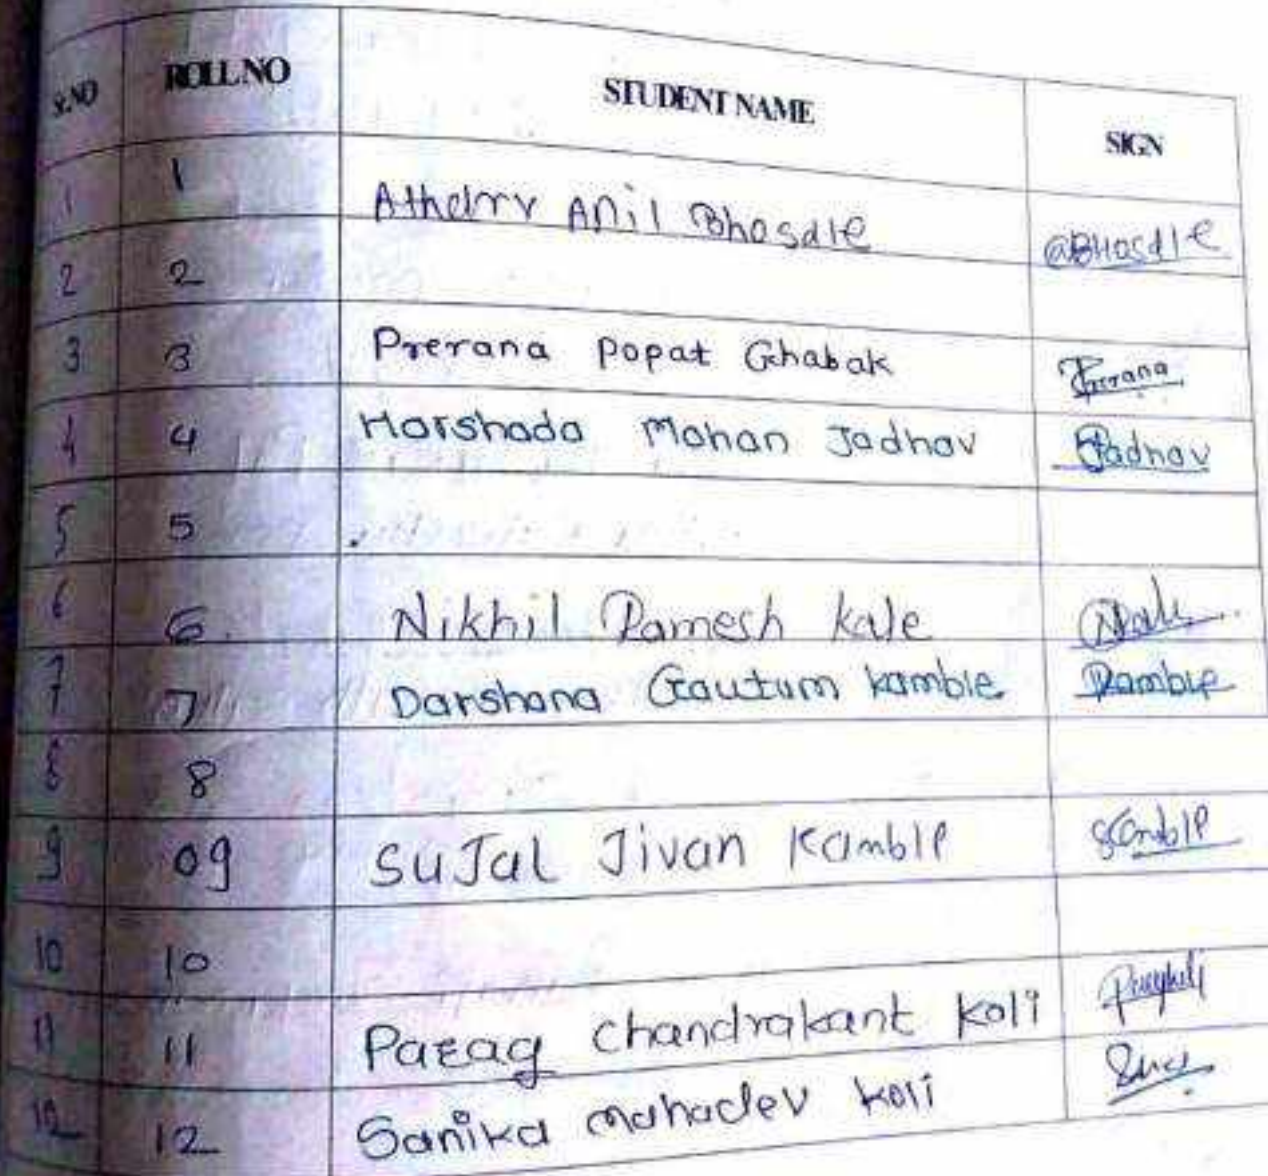 Sr.NO ROLL.NO STUDENT NAME SIGN
1 1 Atharv Anil Bhosale @BHosale
2 2
3 3 Prerana Popat Ghabak Prerana
4 4 Harshada Mohan Jadhav Jadhav
5 5
6 6 Nikhil Ramesh kale
7 7 Darshana Gautum kamble Kamble
8 8
9 09 SuJal Jivan Kamble SKamble
10 10
11 11 Parag Chandrakant Koli
12 12 Sanika mahadev koli